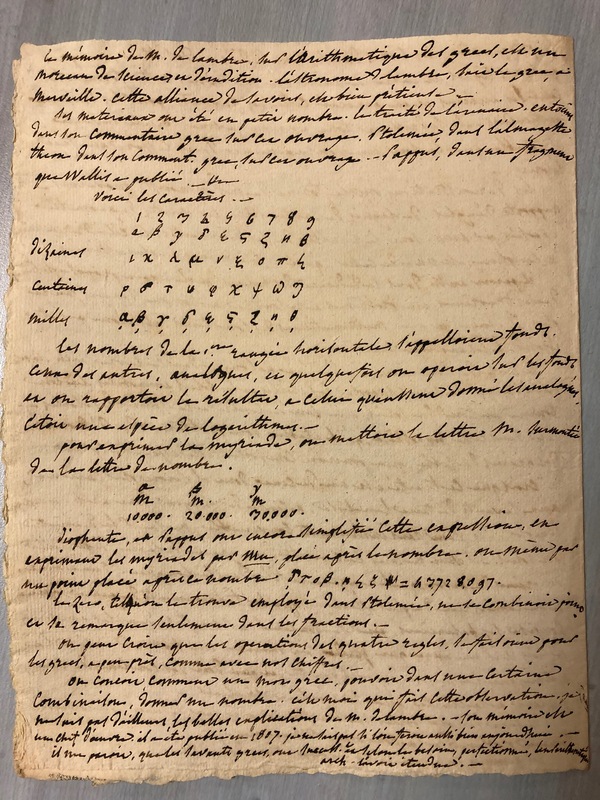 le mémoire de M. de lambre, sur l'arithmetique des grecs, est un
morceau de science et d'érudition. l'astronome de lambre, sait le grec à
merveille. cette alliance de savoirs, est bien pretieuse. —
les materiaux ont été en petit nombre. le traité de l'arenaire. eutocius
dans son commentaire grec sur cet ouvrage. Ptolemée dans l'almageste
theon dans son comment. grec, sur cet ouvrage. — Pappus, dans un fragment
que Wallis a publié. —
Voici les caracteres. —
1 2 3 4 5 6 7 8 9
α β γ δ ε ς ζ η θ
dizaines ι κ λ μ ν ξ ο π
centaines ρ σ τ υ φ χ ψ ω
milles α β γ δ ε ς ζ η θ
les nombres de la 1ere rangée horisontale s'appelloient fonds.
ceux des autres, analogues, et quelquefois on operoit sur les fonds
en on rapportoit le resultat, a celui qu'eussent donné les analogues,
c'etoit une espèce de logarithmes. —
pour exprimer la myriade, on mettoit la lettre M. surmontée
de la lettre du nombre.
α β γ
M M. M
10,000. 20.000. 30,000.
diophante, et Pappus ont encore simplifié cette expression, en
exprimant les myriades par Mu, placé après le nombre. ou même par
un point placé après ce nombre δτοβ. ηζ = 43728097.
le zero, on le trouve employé dans Ptolemée, ne se combinoit jamais
et se remarque seulement dans les fractions. —
on peut croire que les operations des quatre regles, se faisoient pour
les grecs, a peu près, comme avec nos chiffres. —
on conçoit comment un mot grec, pouvoit dans une certaine
combinaison, donner un nombre. c'est moi qui fais cette observation. je
ne sais pas d'ailleurs les belles explications de M. de lambre. — son mémoire est
un chef d'oeuvre. il a été publié en 1807. je ne sais pas si l'on feroit aussi bien aujourd'hui. —
il me paroit, que les savants grecs, ont selon le besoin, perfectionné,
arch. l'avoit étendue. —